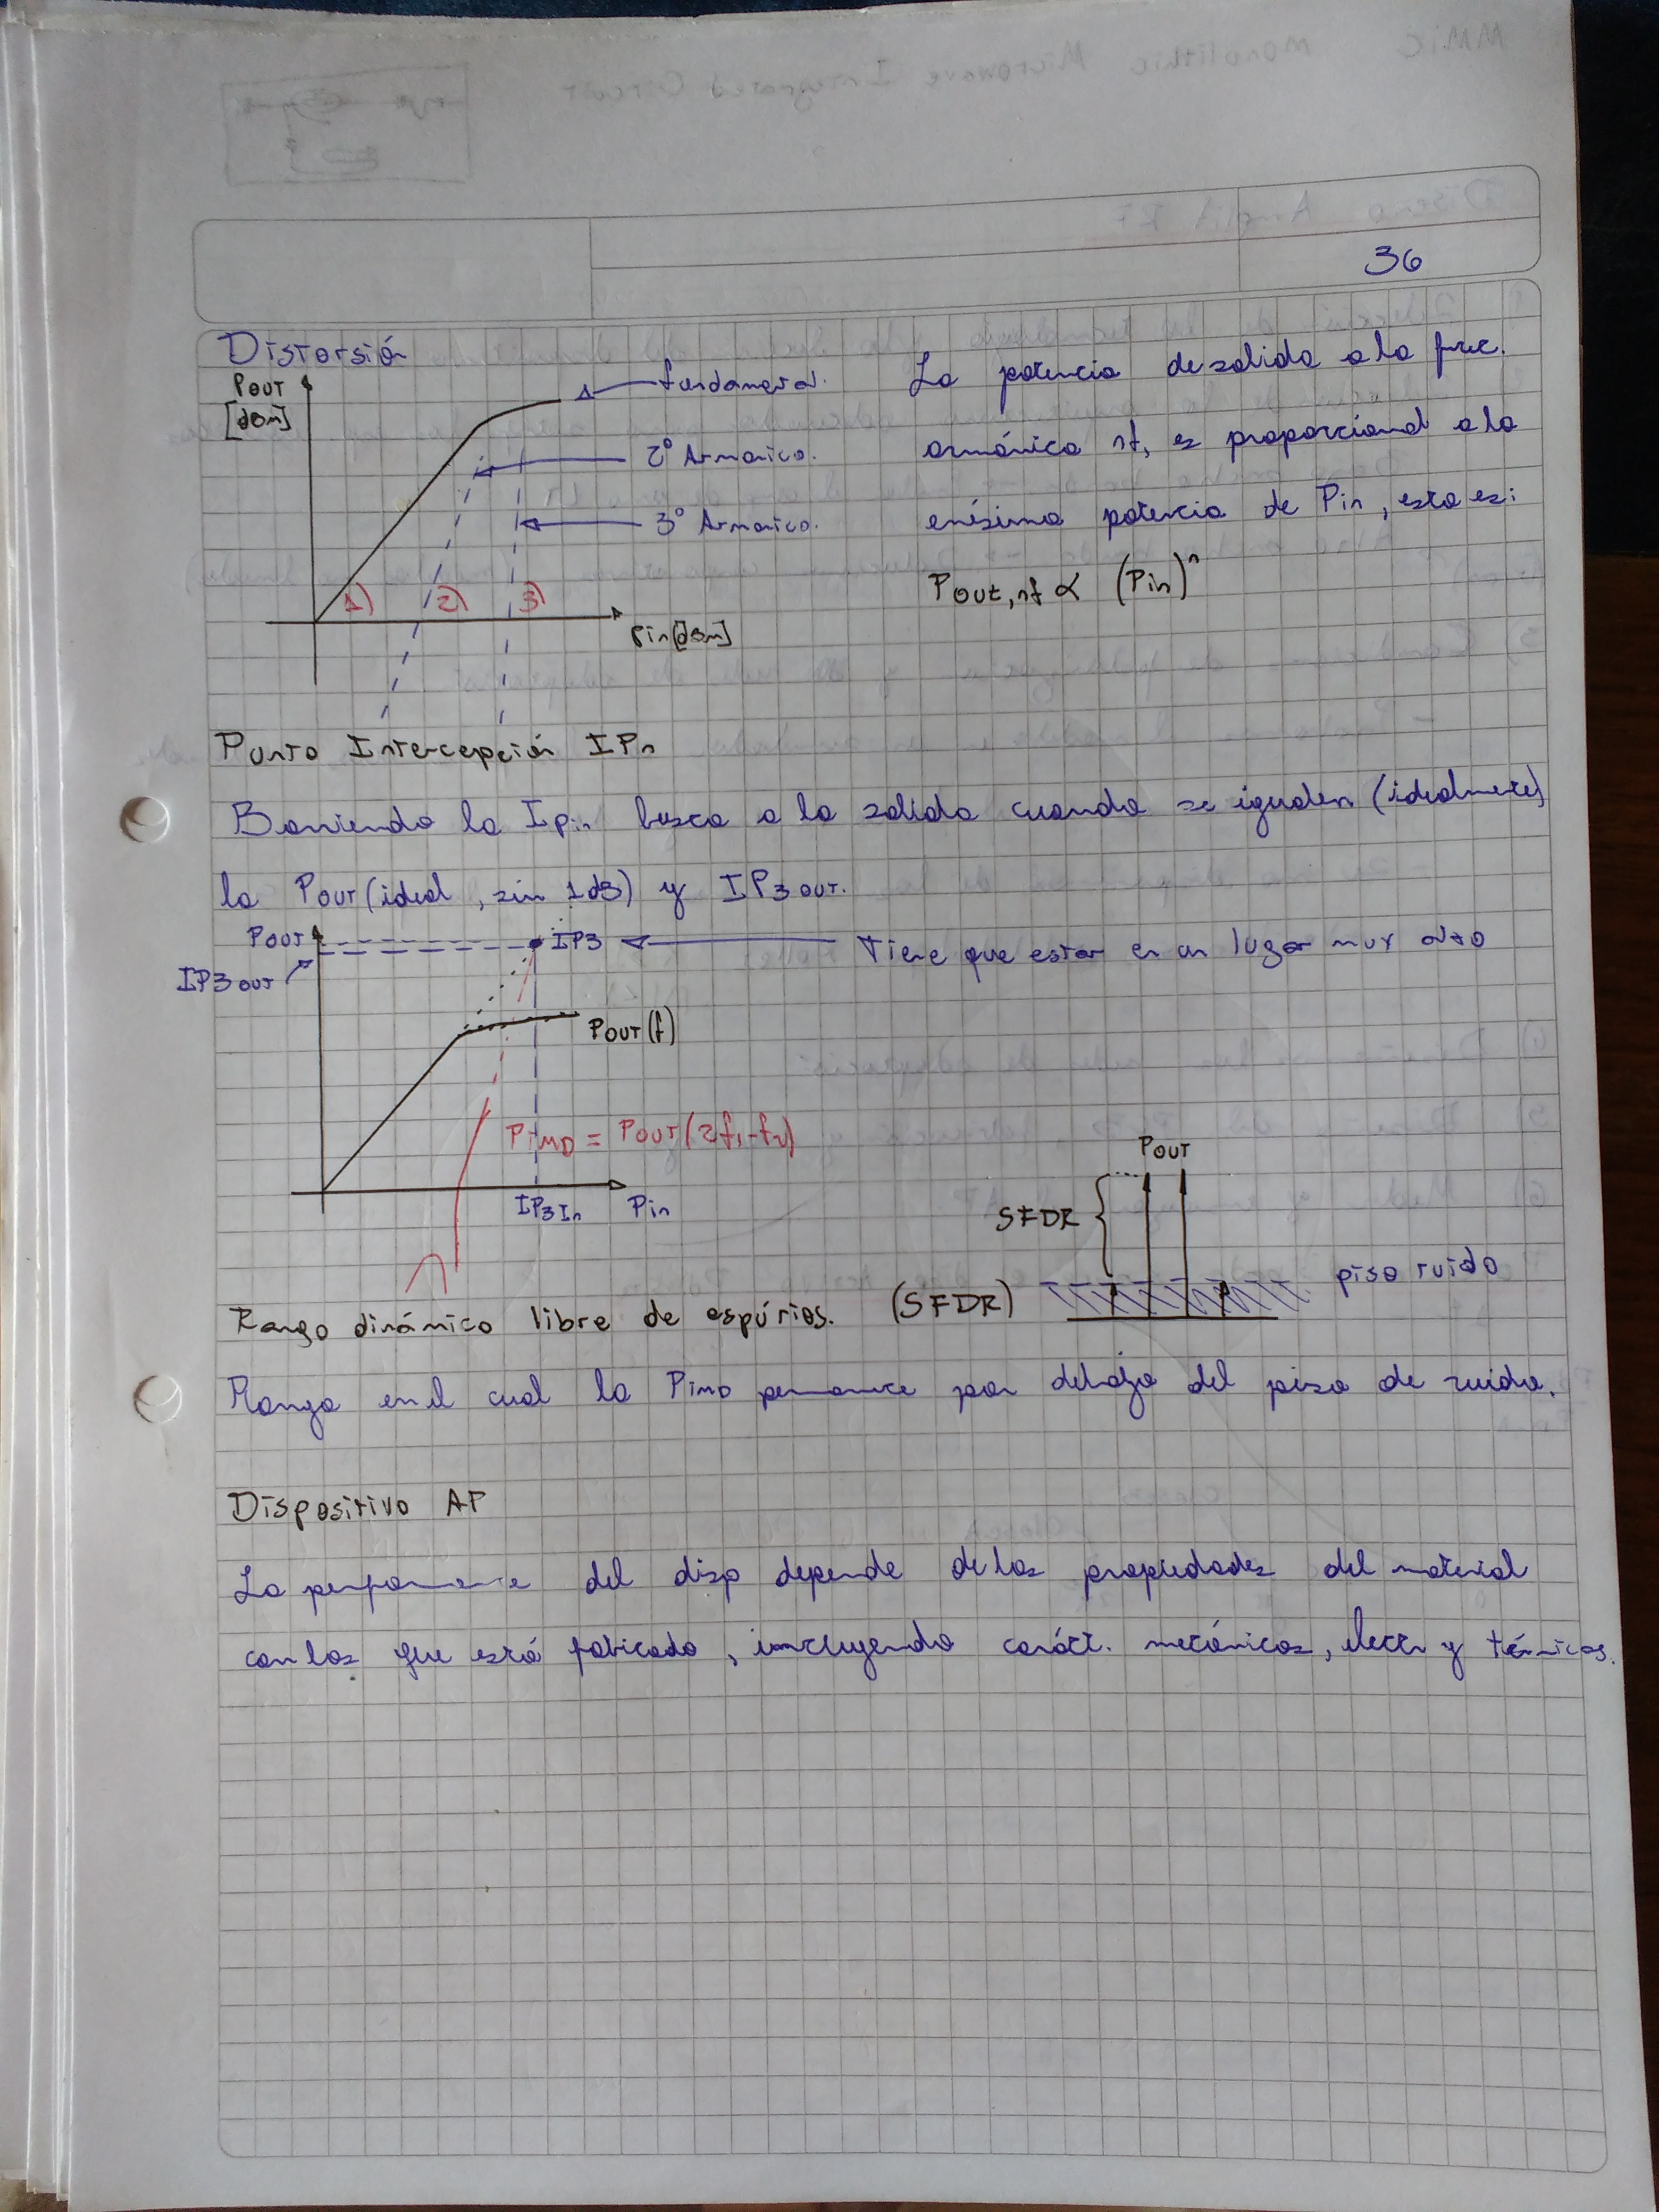 36
Distorsión
Pout
[dBm]
fundamental.
2° Armonico.
3° Armonico.
1) 2) 3)
Pin[dBm]
La potencia de salida a la frec.
armónica nf, es proporcional a la
enésima potencia de Pin, esto es:
Pout,nf ∝ (Pin)^n
Punto Intercepción IPn
la Ipin busco a la salida cuando se igualen (idealmente)
la Pout (ideal, sin 1dB) y IP3 out.
Pout
IP3 out
IP3
Tiene que estar en un lugar muy alto
Pout(f)
PIMD = Pout(2f1-f2)
IP3 In
Pin
Pout
SFDR
piso ruido
Rango dinámico libre de espúrios. (SFDR)
Rango en el cual la PIMD permanece por debajo del piso de ruido.
Dispositivo AP
La performance del disp depende de las propiedades del material
con los que está fabricado, incluyendo caráct. mecánicas, electr y térmicas.